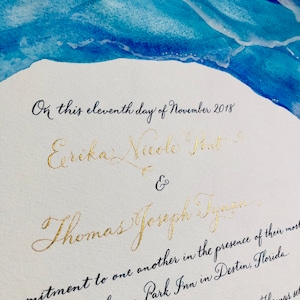 On this eleventh day of November 2018
Eerika Nicole
&
Thomas Joseph
to one another in the presence of their most
Park Inn in Destin, Florida